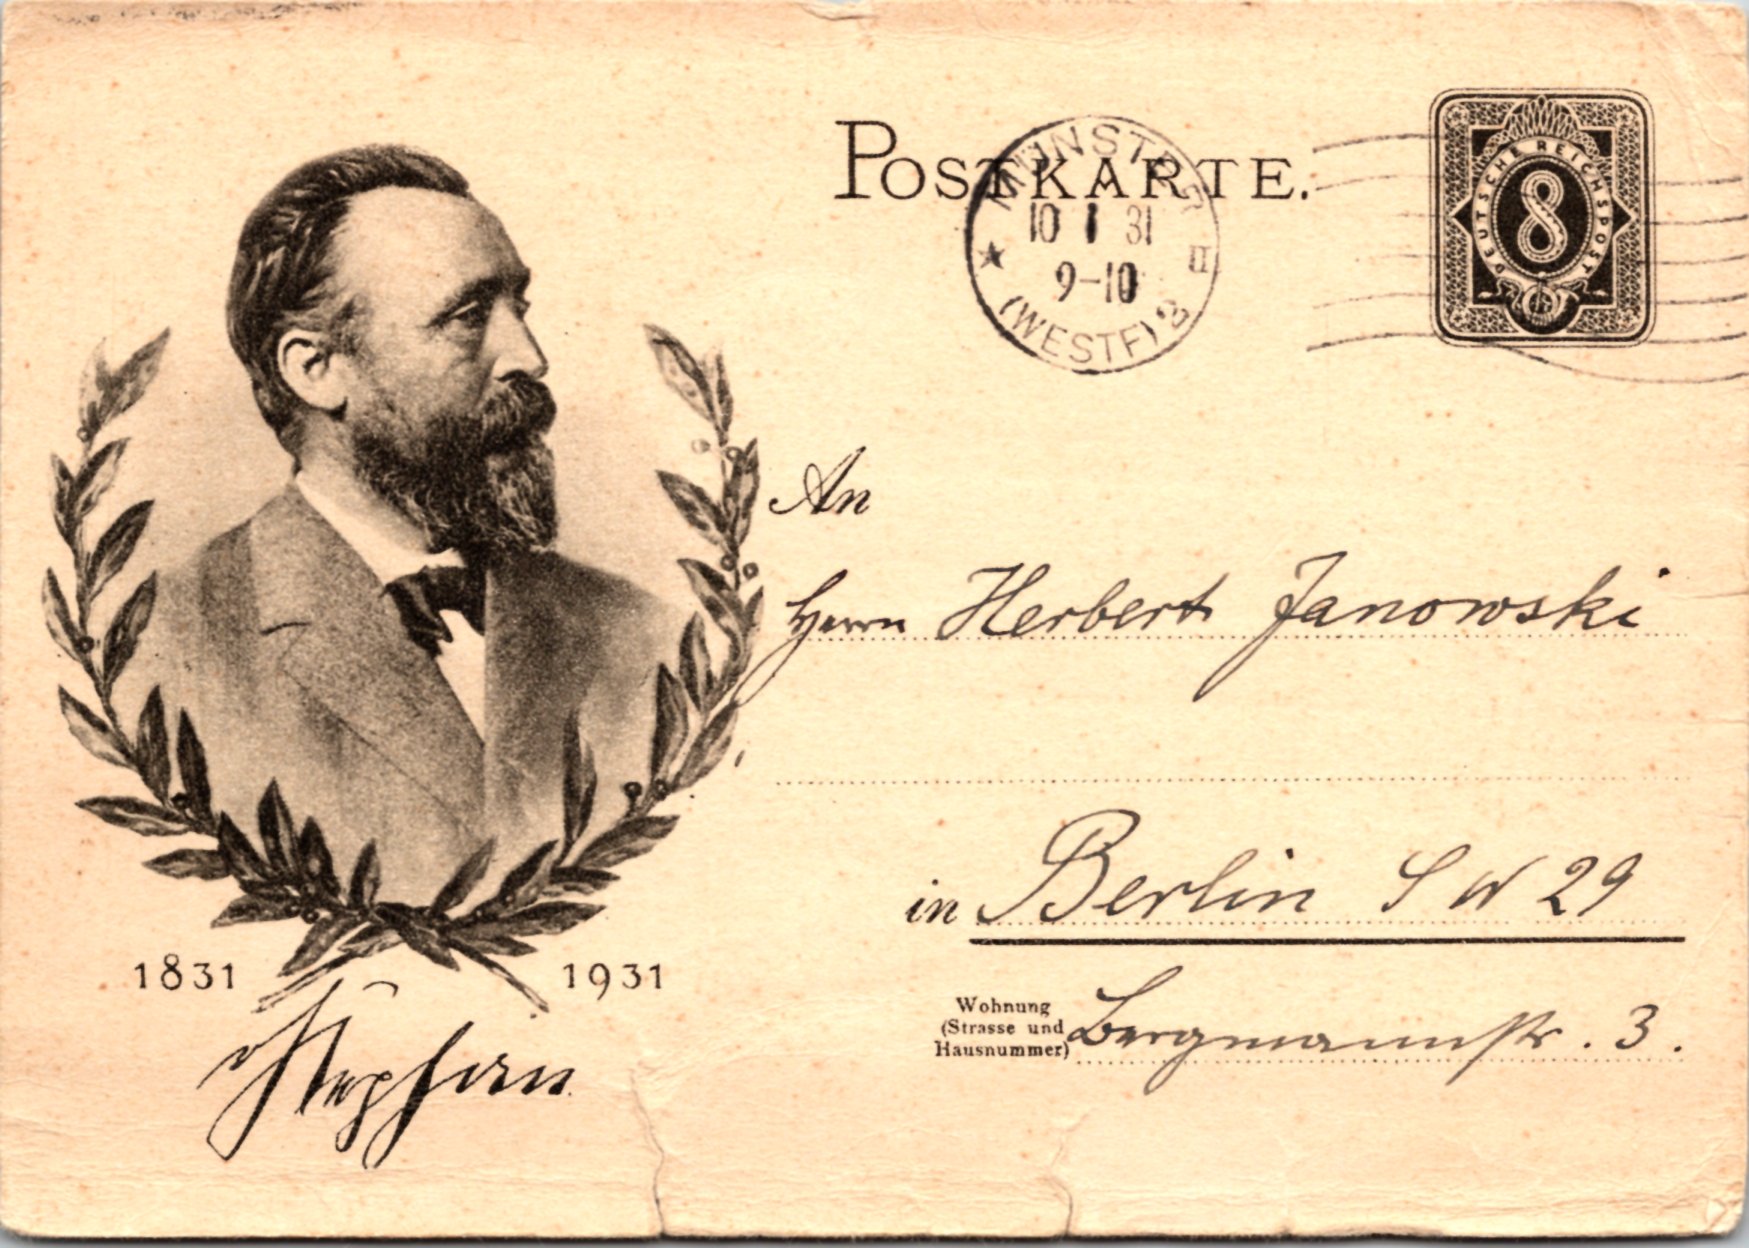 POSTKARTE.
MÜNSTER
10 1 31
II
9-10
(WESTF) 2
DEUTSCHE REICHSPOST
8
An
Herrn Herbert Janowski
in Berlin SW 29
Wohnung
(Strasse und
Hausnummer)
Bergmannstr. 3.
1831 1931
Stephan